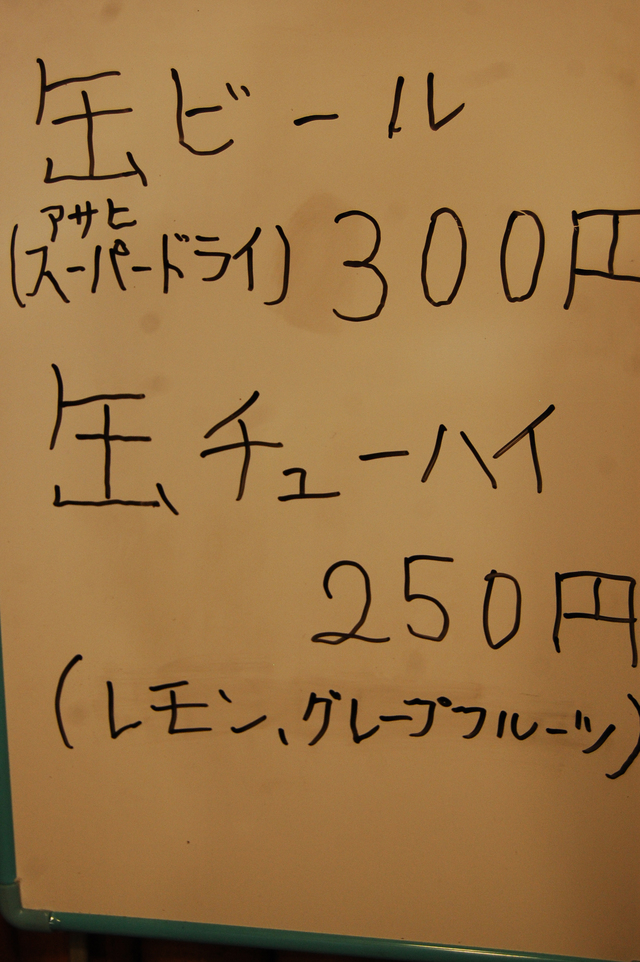 缶ビール
アサヒ
(スーパードライ) 300円
缶チューハイ
250円
(レモン、グレープフルーツ)